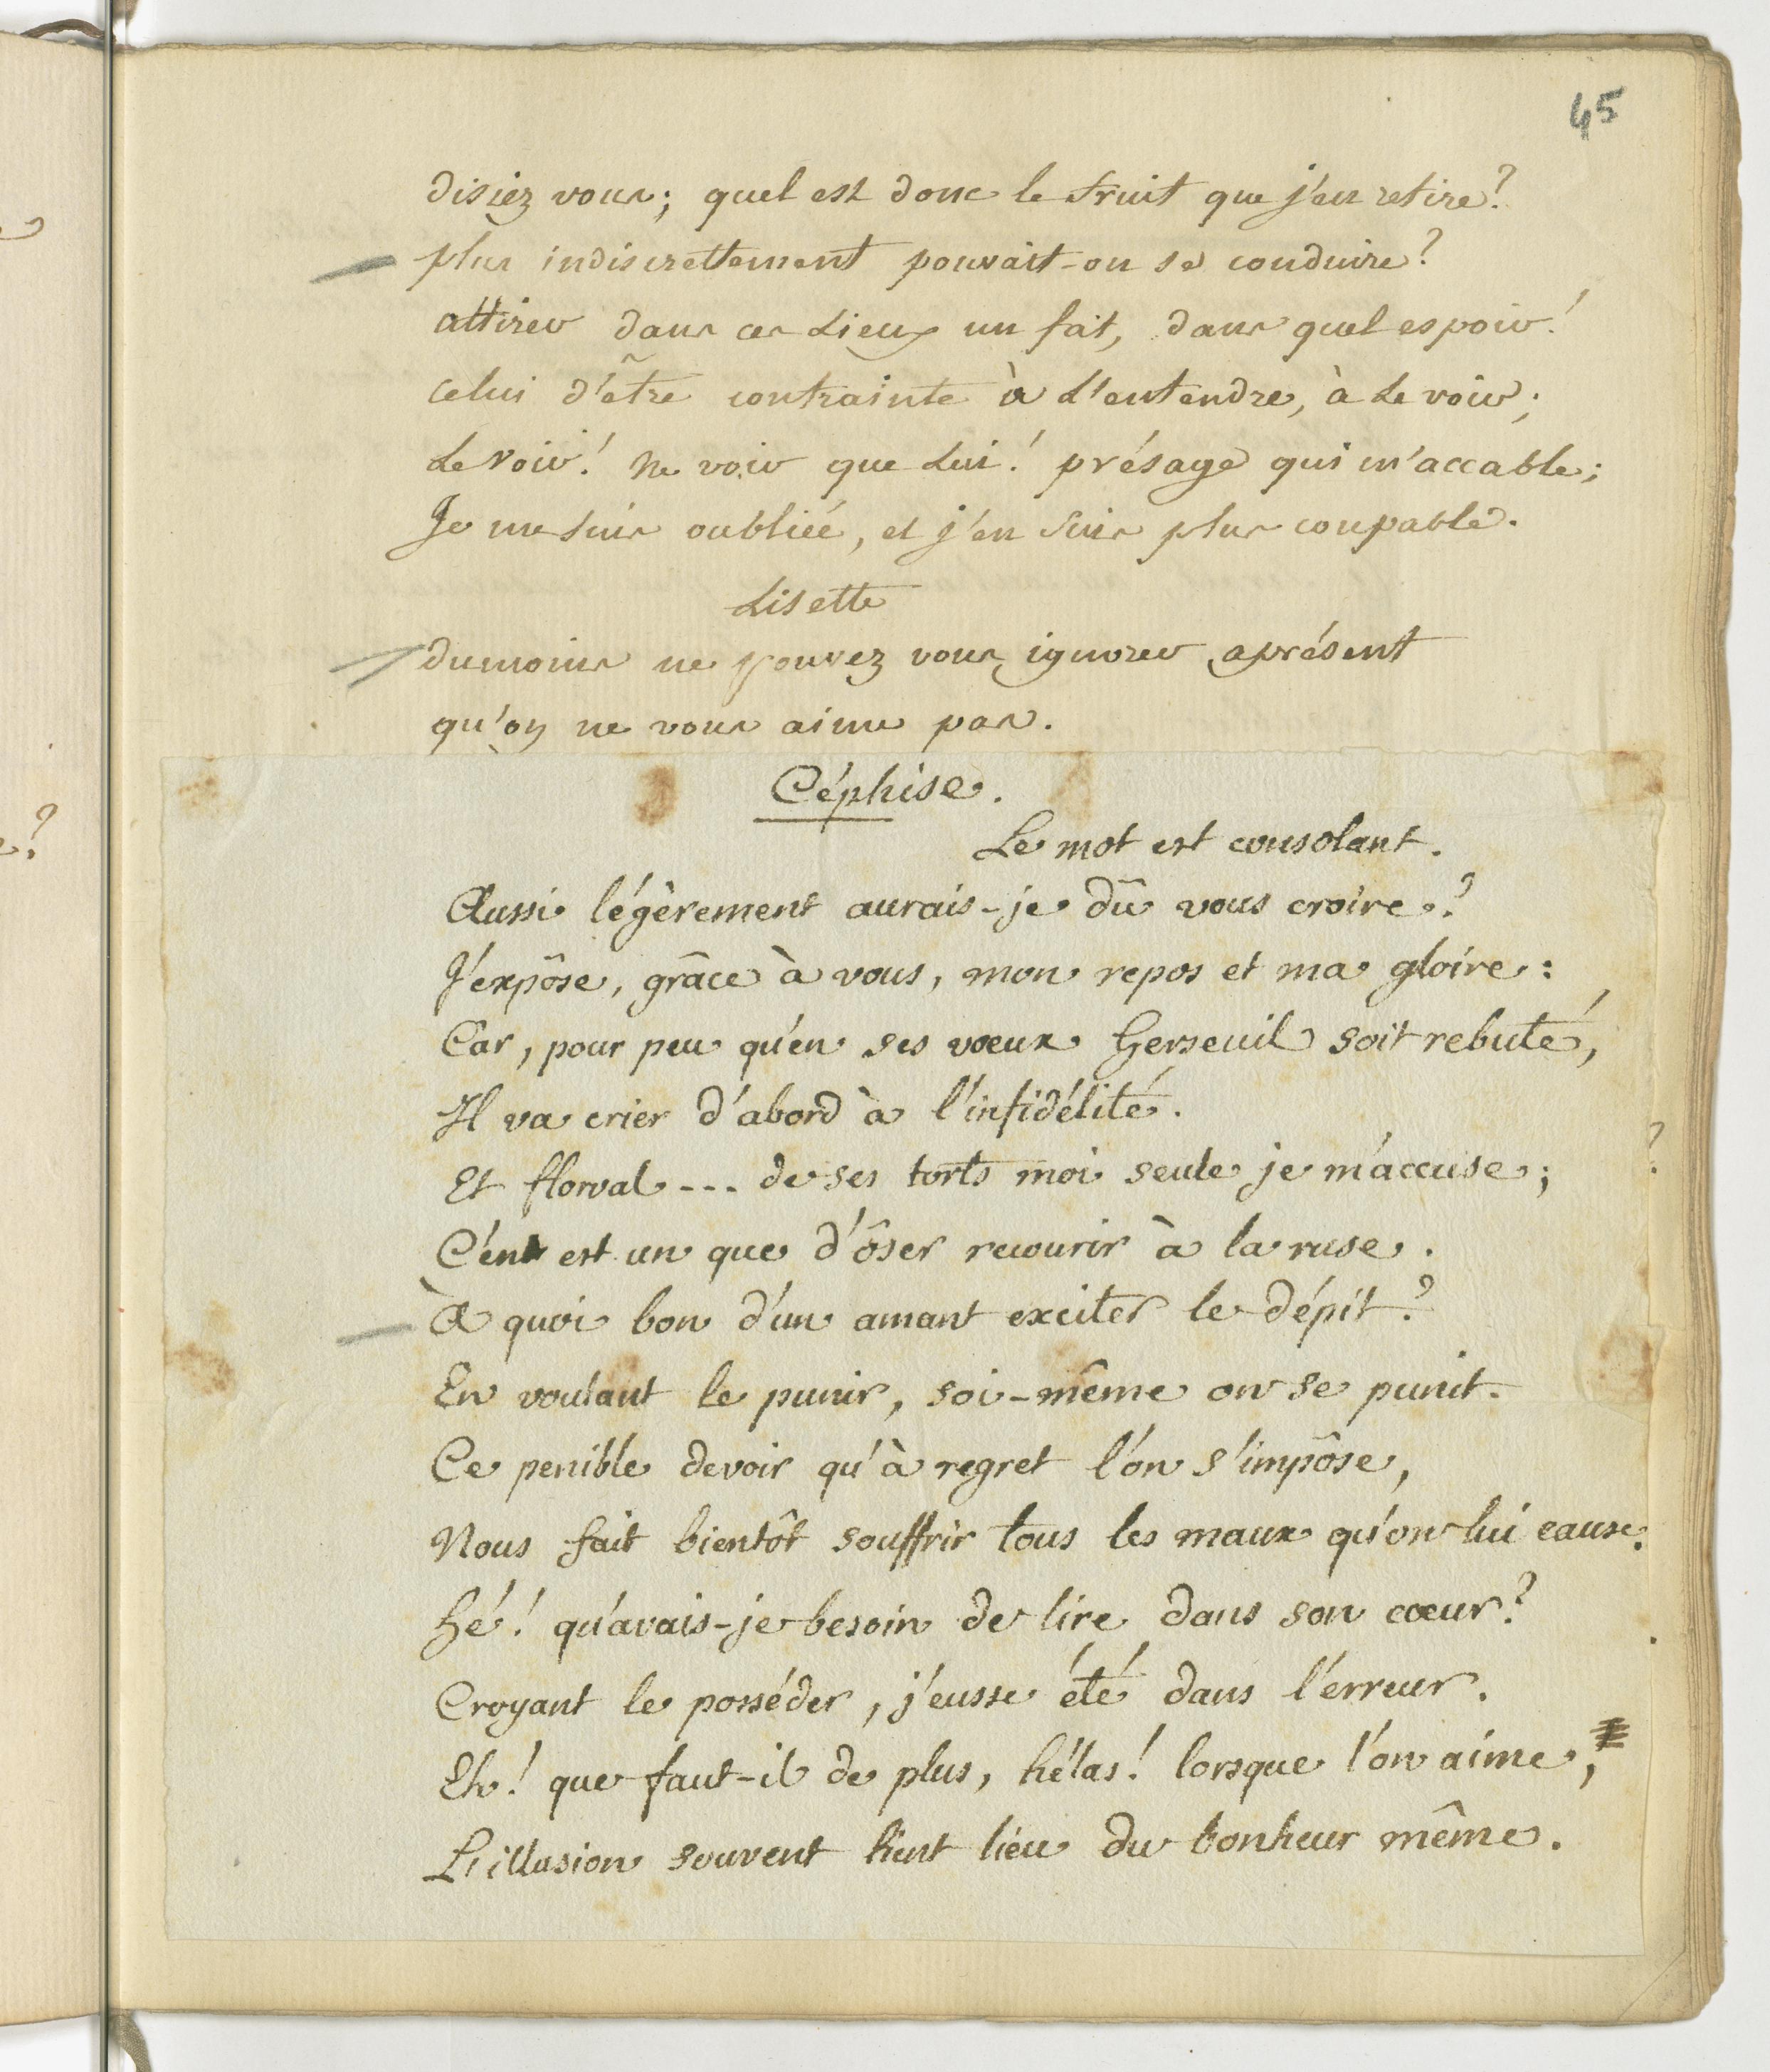 45
disiez vous; quel est donc le fruit que j'en retire?
plus indiscrettement pouvait-on se conduire?
attirer dans ces Lieux un fait, dans quel espoir!
celui d'être contrainte à L'entendre, à Le voir;
Le voir! ne voir que Lui! présage qui m'accable;
Je me suis oubliéé, et j'en suis plus coupable.
Lisette
dumoins ne pouvez vous ignorer aprésent
qu'on ne vous aime pas.
Céphise.
Le mot est consolant.
Aussi légèrement aurais-je dû vous croire?
J'expôse, grâce à vous, mon repos et ma gloire:
Car, pour peu qu'en ses voeux Gerseuil soit rebuté,
Il va crier d'abord à l'infidélité.
Et florval --- de ses torts moi seule je m'accuse;
C'en est un que d'ôser recourir à la ruse.
À quoi bon d'un amant exciter le dépit?
En voulant le punir, soi-même on se punit.
Ce penible devoir qu'à regret l'on s'impôse,
Nous fait bientôt souffrir tous les maux qu'on lui cause.
hé! qu'avais-je besoin de lire dans son coeur?
Croyant le posséder, j'eusse été dans l'erreur.
Eh! que faut-il de plus, hélas! lorsque l'on aime,
L'illusion souvent tient lieu du bonheur même.